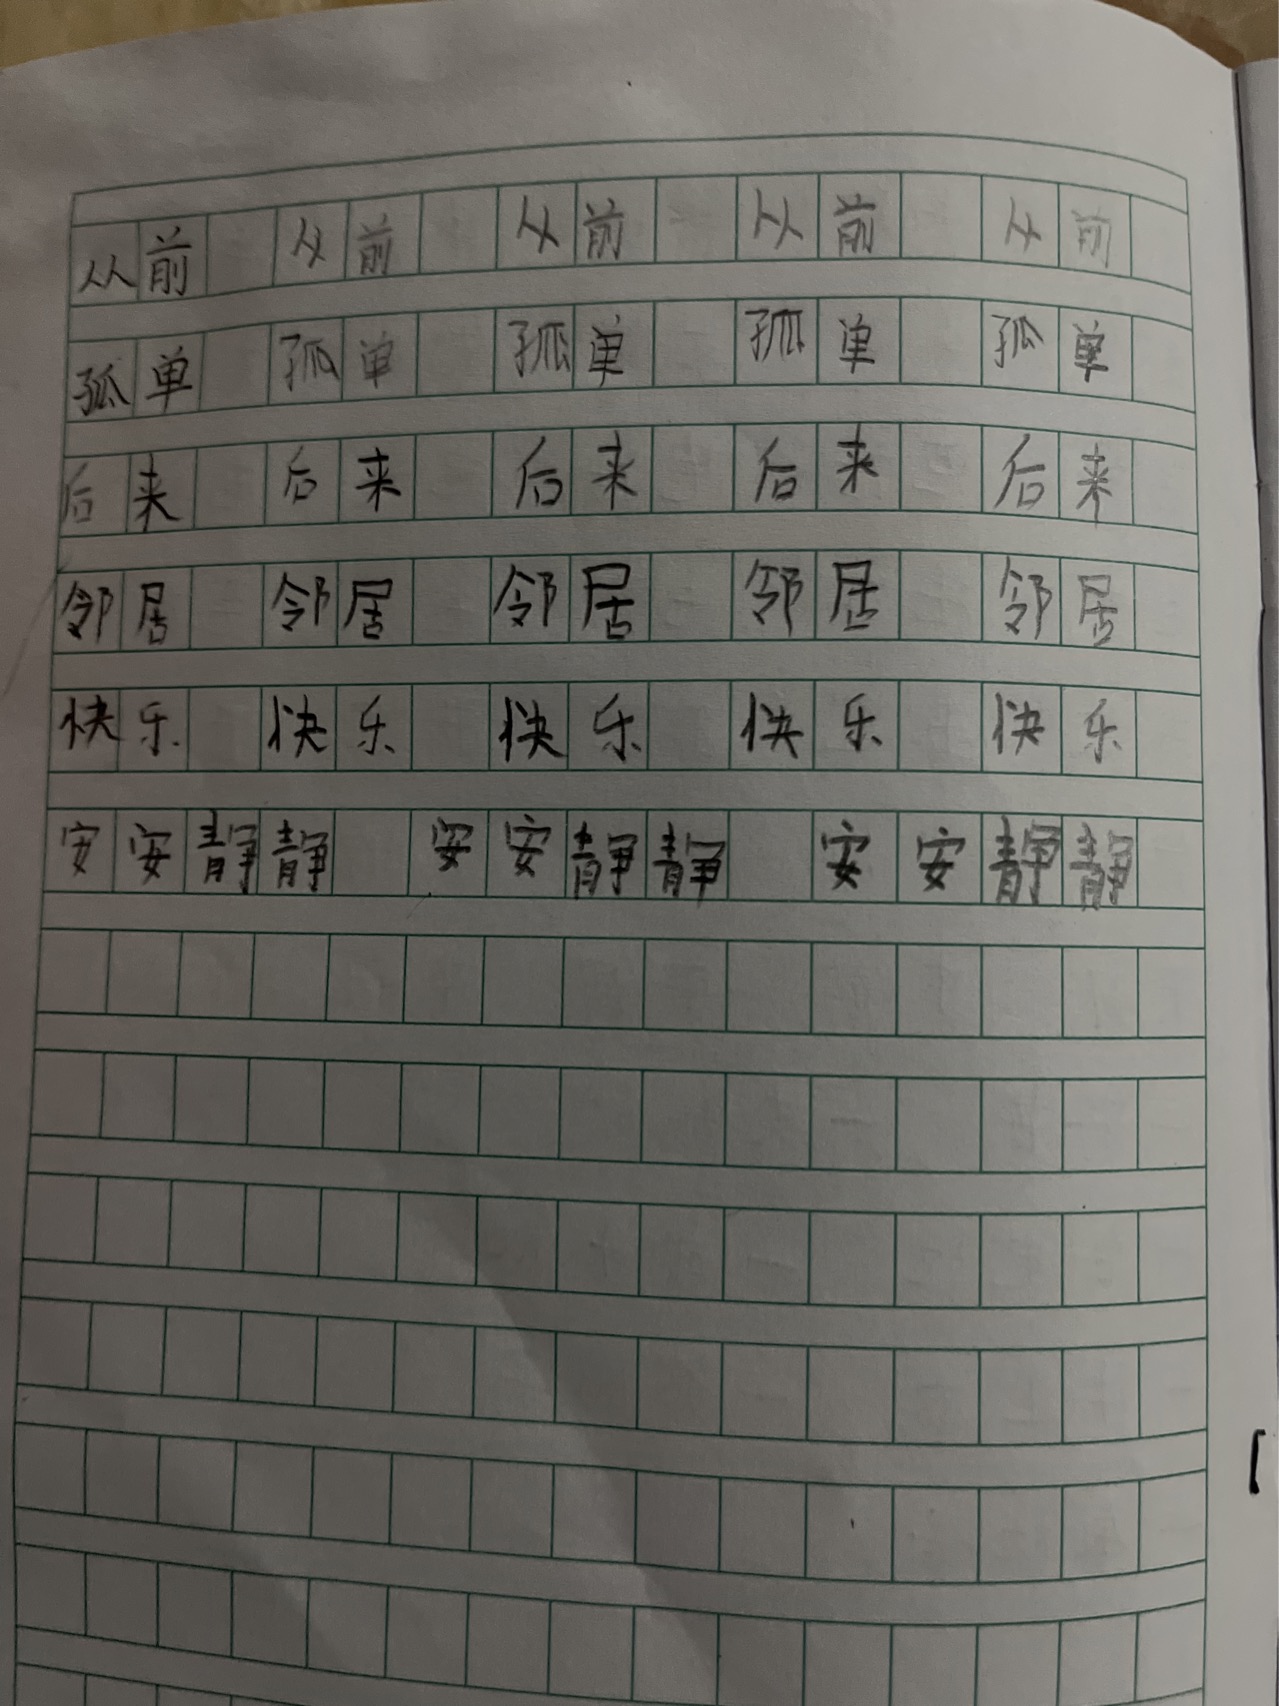 从前 从前 从前 从前 从前
孤单 孤单 孤单 孤单 孤单
后来 后来 后来 后来 后来
邻居 邻居 邻居 邻居 邻居
快乐 快乐 快乐 快乐 快乐
安安静静 安安静静 安安静静